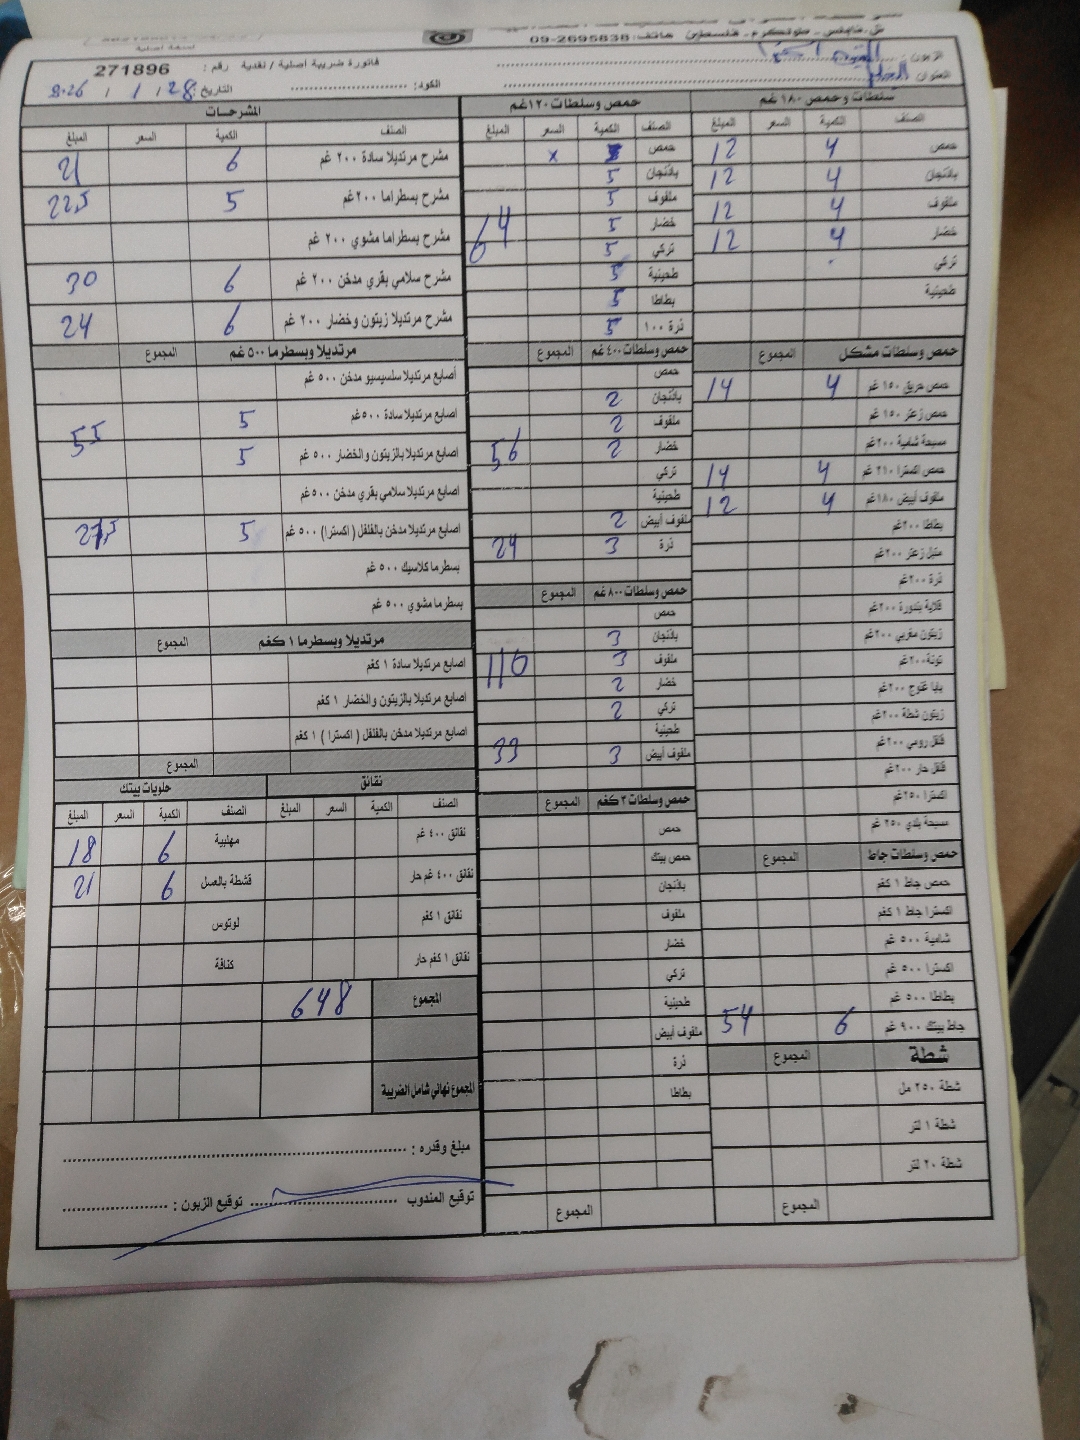 ش. نابلس - طولكرم - فلسطين هاتف: 09-2695838
نسخة أصلية
فاتورة ضريبة اصلية / نقدية رقم: 271896
الزبون:
العنوان:
الكود: التاريخ: 28 / 1 / 2026
سلطات وحمص ١٨٠ غم
الصنف الكمية السعر المبلغ
حمص 4 12
باذنجان 4 12
ملفوف 4 12
خضار 4 12
تركي
طحينية
حمص وسلطات مشكل المجموع
حمص حريق ١٥٠ غم 4 14
حمص زعتر ١٥٠ غم
مسبحة شامية ٢٠٠غم
حمص اكسترا ٢١٠ غم 4 14
ملفوف أبيض ١٨٠غم 4 12
بطاطا ٢٠٠غم
متبل زعتر ٢٠٠غم
ذرة ٢٠٠غم
قلاية بندورة ٢٠٠غم
زيتون مغربي ٢٠٠غم
تونة ٢٠٠غم
بابا غنوج ٢٠٠غم
زيتون شطة ٢٠٠غم
فلفل رومي ٢٠٠غم
فلفل حار ٢٠٠غم
اكسترا ٢٥٠غم
مسبحة بلدي ٢٥٠ غم
حمص وسلطات جاط المجموع
حمص جاط ١ كغم
اكسترا جاط ١ كغم
شامية ٥٠٠ غم
اكسترا ٥٠٠ غم
بطاطا ٥٠٠ غم
جاط بيتك ٩٠٠ غم 6 54
شطة المجموع
شطة ٢٥٠ مل
شطة ١ لتر
شطة ٢٠ لتر
المجموع
حمص وسلطات ١٢٠غم
الصنف الكمية السعر المبلغ
حمص x
باذنجان 5
ملفوف 5
خضار 5 64
تركي 5
طحينية 5
بطاطا 5
ذرة ١٠٠ 5
حمص وسلطات ٤٠٠ غم المجموع
حمص
باذنجان 2
ملفوف 2
خضار 2 56
تركي
طحينية
ملفوف أبيض 2
ذرة 3 24
حمص وسلطات ٨٠٠ غم المجموع
حمص
باذنجان 3
ملفوف 3 110
خضار 2
تركي 2
طحينية
ملفوف أبيض 3 33
حمص وسلطات ٣ كغم المجموع
حمص
حمص بيتك
باذنجان
ملفوف
خضار
تركي
طحينية
ملفوف أبيض
ذرة
بطاطا
المجموع
المشرحات
الصنف الكمية السعر المبلغ
مشرح مرتديلا سادة ٢٠٠ غم 6 21
مشرح بسطراما ٢٠٠غم 5 22,5
مشرح بسطراما مشوي ٢٠٠ غم
مشرح سلامي بقري مدخن ٢٠٠ غم 6 30
مشرح مرتديلا زيتون وخضار ٢٠٠ غم 6 24
مرتديلا وبسطرما ٥٠٠ غم المجموع
أصابع مرتديلا سلسيسيو مدخن ٥٠٠ غم
اصابع مرتديلا سادة ٥٠٠غم 5 55
اصابع مرتديلا بالزيتون والخضار ٥٠٠ غم 5
اصابع مرتديلا سلامي بقري مدخن ٥٠٠غم
اصابع مرتديلا مدخن بالفلفل (اكسترا) ٥٠٠ غم 5 27,5
بسطرما كلاسيك ٥٠٠ غم
بسطرما مشوي ٥٠٠ غم
مرتديلا وبسطرما ١ كغم المجموع
اصابع مرتديلا سادة ١ كغم
اصابع مرتديلا بالزيتون والخضار ١ كغم
اصابع مرتديلا مدخن بالفلفل (اكسترا) ١ كغم
المجموع
نقانق
الصنف الكمية السعر المبلغ
نقانق ٤٠٠ غم
نقانق ٤٠٠ غم حار
نقانق ١ كغم
نقانق ١ كغم حار
حلويات بيتك
الصنف الكمية السعر المبلغ
مهلبية 6 18
قشطة بالعسل 6 21
لوتوس
كنافة
المجموع 648
المجموع نهائي شامل الضريبة
مبلغ وقدره:
توقيع المندوب توقيع الزبون: